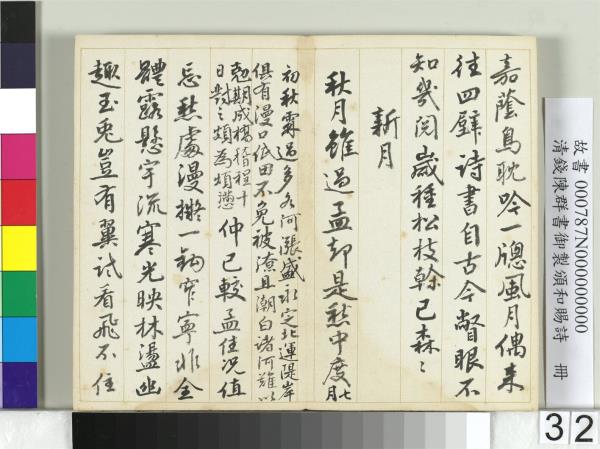 嘉蔭鳥耽吟一牎風月偶來
往四壁詩書自古今瞥眼不
知幾閱歲種松枝榦已森〻
新月
秋月雖過孟却是愁中度七月
初秋霖過多各河漲盛永定北運隄岸
俱有漫口低田不免被潦且潮白諸河難以
尅期成橋稽程十
日對之頗為煩懣
仲已較孟佳況值
忘愁處漫擬一鈎窄寧非全
體露懸宇流寒光映林盪幽
趣玉兔豈有翼試看飛不住
故書 000787N000000000
清錢陳群書御製頒和賜詩 冊
32